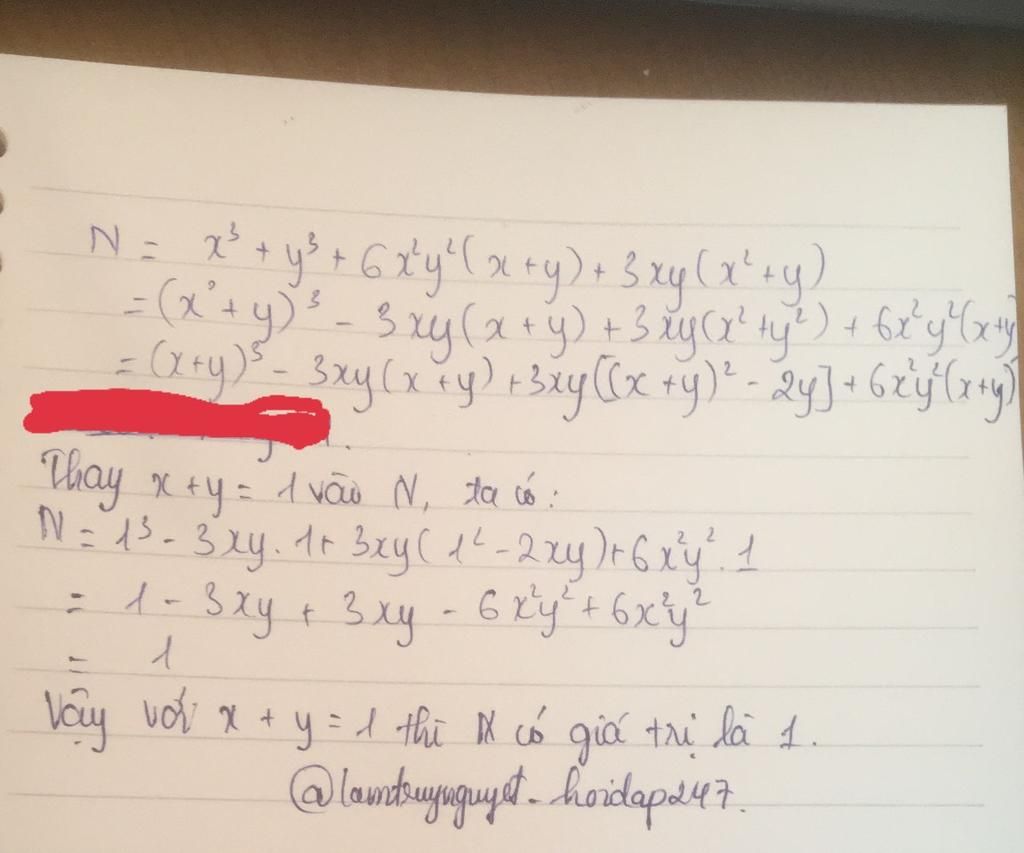 N = x³ + y³ + 6x²y²(x+y) + 3xy(x²+y)
= (x²+y)³ - 3xy(x+y) + 3xy(x²+y²) + 6x²y²(x+y)
= (x+y)³ - 3xy(x+y) + 3xy[(x+y)² - 2y] + 6x²y²(x+y)
Thay x+y = 1 vào N, ta có:
N = 1³ - 3xy.1 + 3xy(1² - 2xy) + 6x²y².1
= 1 - 3xy + 3xy - 6x²y² + 6x²y²
= 1
Vậy với x + y = 1 thì N có giá trị là 1.
@lamtruynguyet_hoidap247.